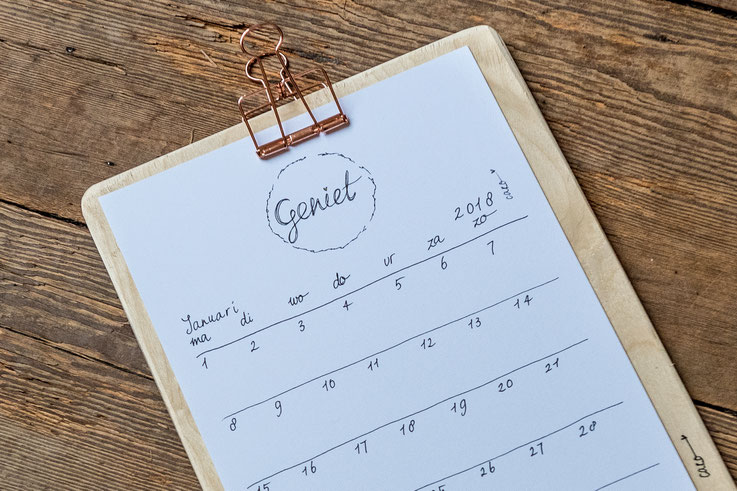 Geniet
2018
caro
Januari
ma di wo do vr za zo
1 2 3 4 5 6 7
8 9 10 11 12 13 14
15 16 17 18 19 20 21
25 26 27 28
caro